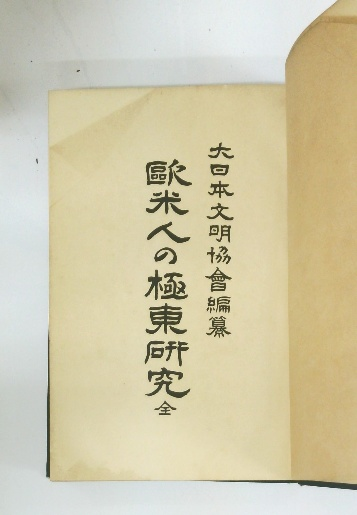 大日本文明協會編纂
歐米人の極東研究 全